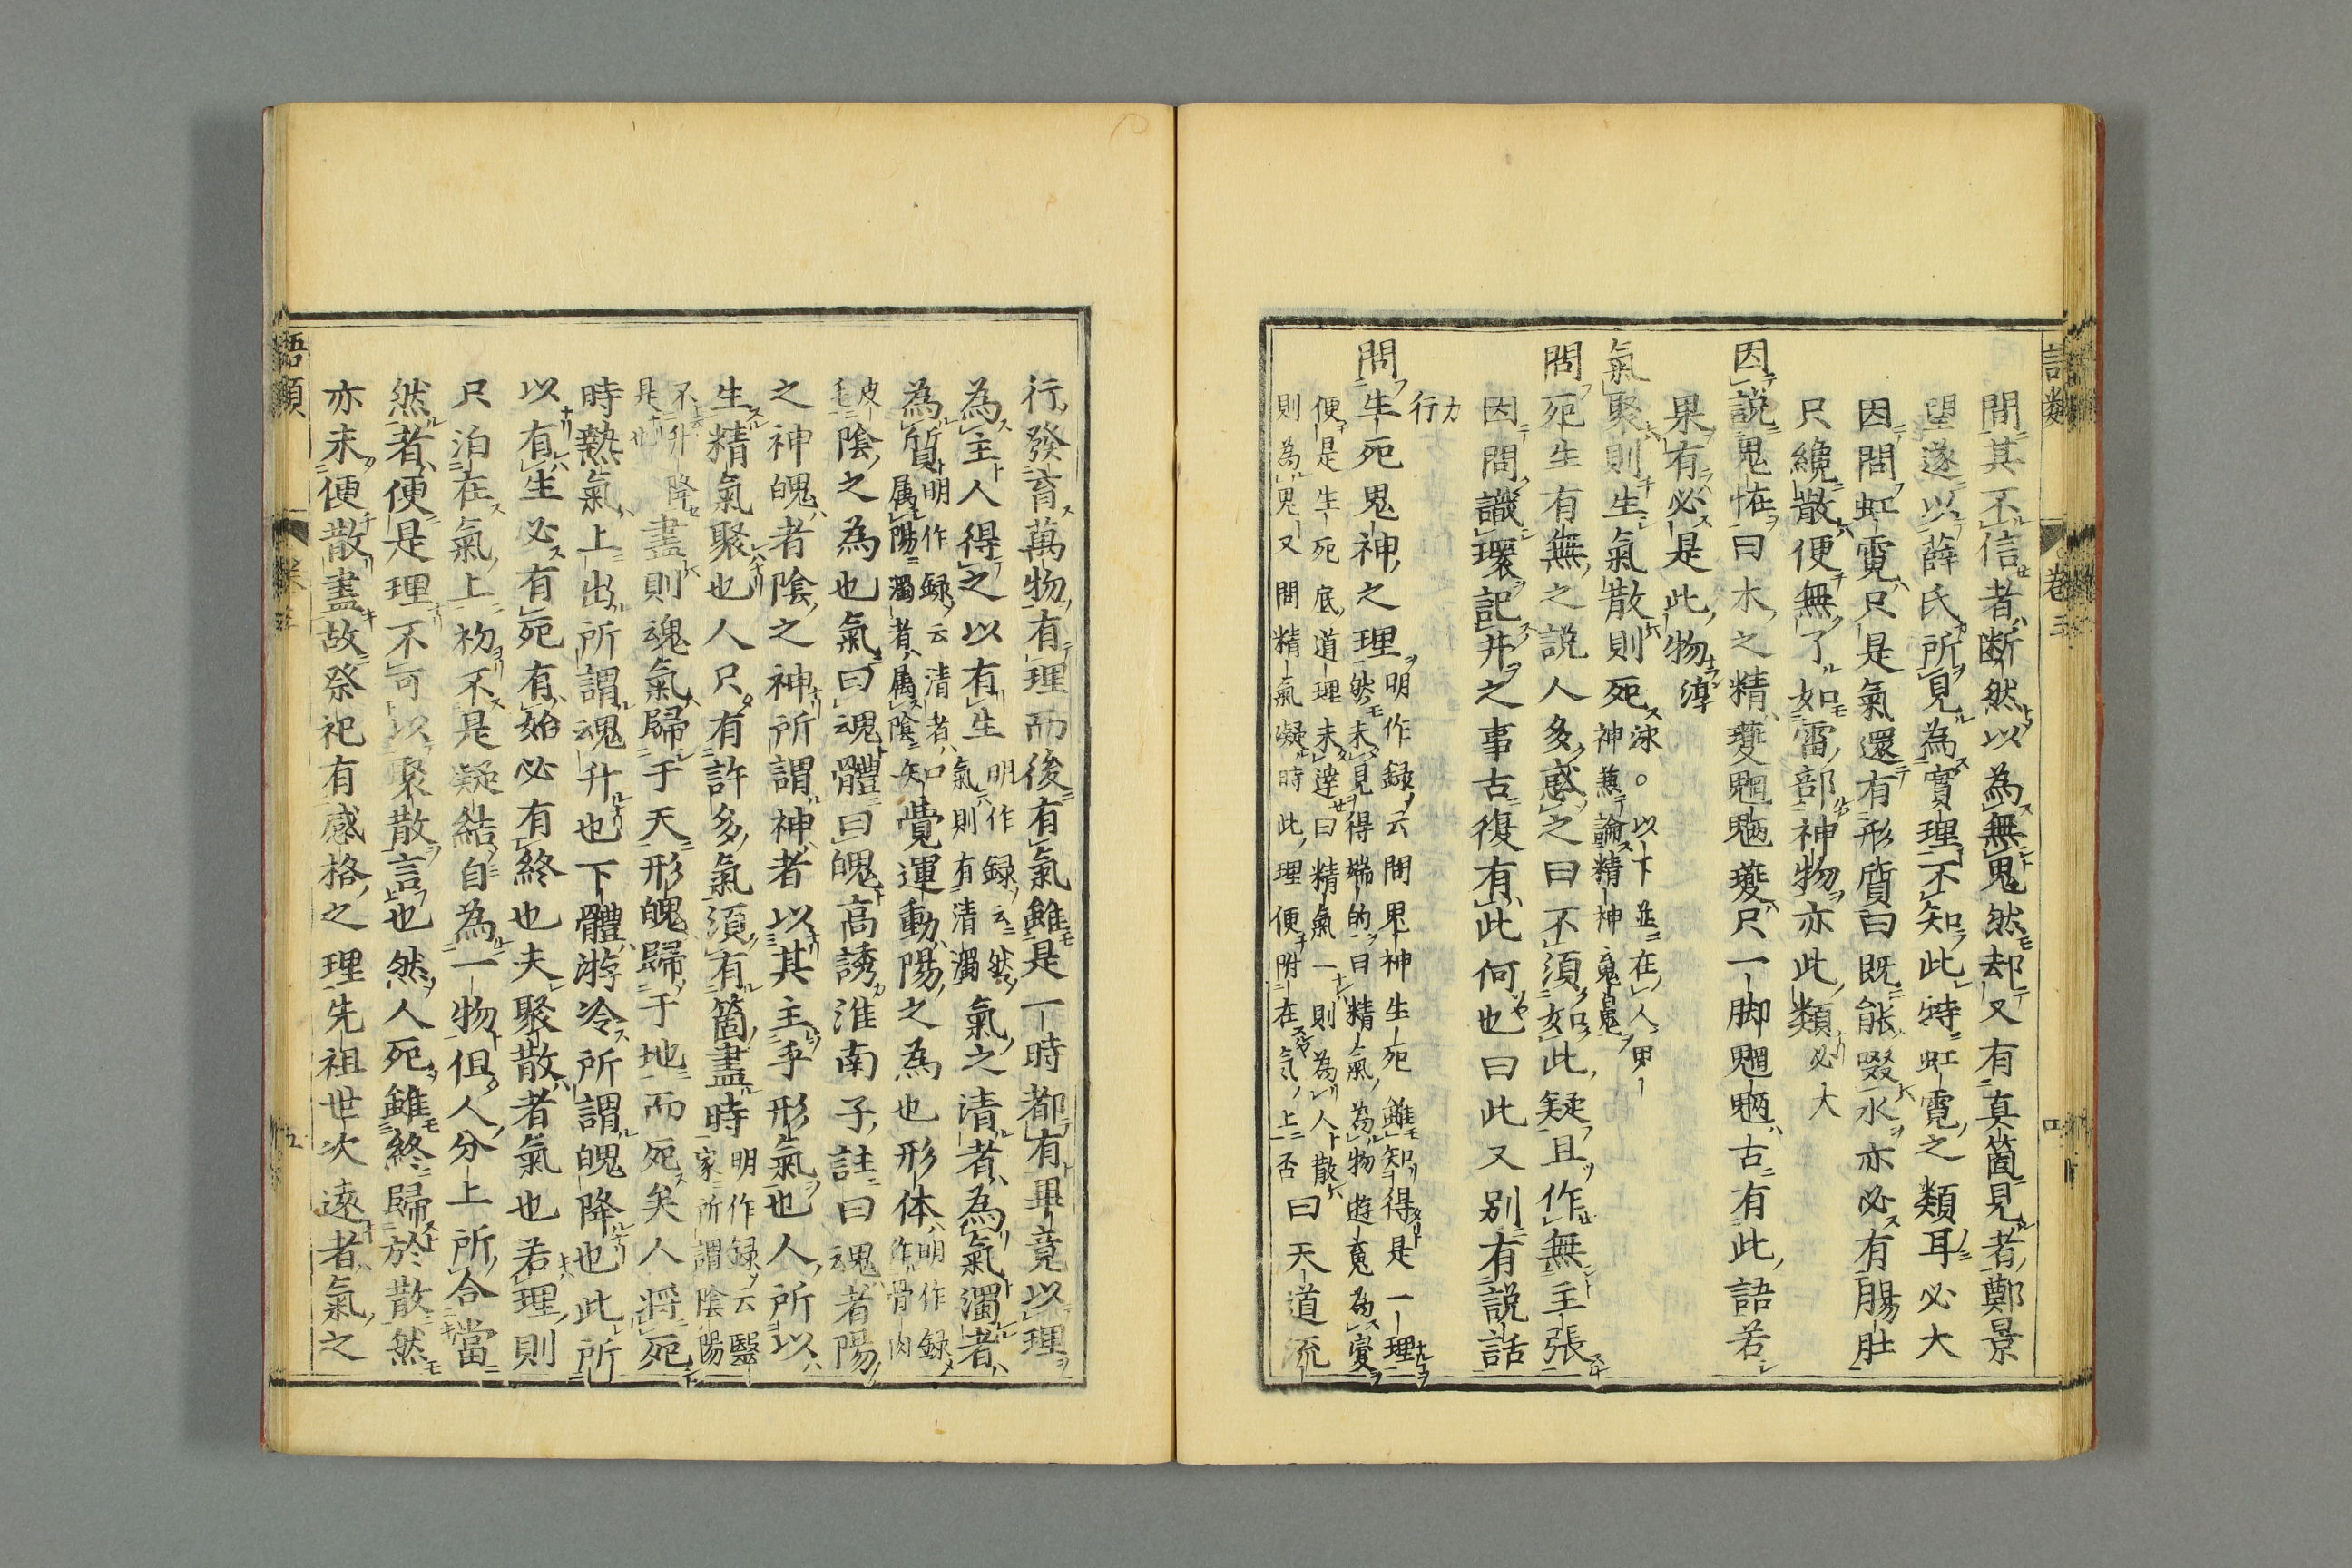 語類 卷三 四
間其不信者断然以為無鬼然却又有真箇見者鄭景
望遂以薛氏所見為實理不知此特虹霓之類耳必大
因問虹霓只是氣還有形質曰既能啜水亦必有腸肚
只纔散便無了如雷部神物亦此類必大
因説鬼恠曰木之精夔魍魎夔只一脚魍魎古有此語若
果有必是此物淳
氣聚則生氣散則死
泳○以下並在人鬼
神兼論精神䰟魄
問死生有無之説人多惑之曰不須如此疑且作無主張
因問識環記井之事古復有此何也曰此又別有説話
力
行
問生死鬼神之理
明作録云問鬼神生死雖知得是一理
然未見得端的曰精氣為物遊䰟為變
便是生死底道理未達曰精氣一則為人散
則為鬼又問精氣凝時此理便附在気上否
曰天道流
行發育萬物有理而後有氣雖是一時都有畢竟以理
為主人得之以有生
明作録云然
氣則有清濁
氣之清者為氣濁者
為質
明作録云清者
属陽濁者属陰
知覺運動陽之為也形体
明作録
作骨肉
皮
毛
陰之為也氣曰魂體曰魄高誘淮南子註曰魂者陽
之神魄者陰之神所謂神者以其主乎形氣也人所以
生精氣聚也人只有許多氣須有箇盡時
明作録云醫
家所謂陰陽
不升降
是也
盡則魂氣歸于天形魄歸于地而死矣人將死
時熱氣上出所謂魂升也下體漸冷所謂魄降也此所
以有生必有死有始必有終也夫聚散者氣也若理則
只泊在氣上初不是凝結自為一物但人分上所合當
然者便是理不可以聚散言也然人死雖終歸於散然
亦未便散盡故祭祀有感格之理先祖世次遠者氣之
語類